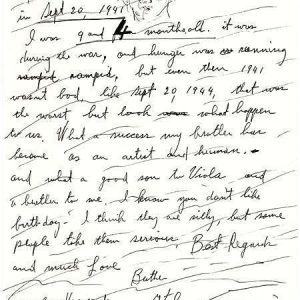 in Sept 20, 1941
I was 9 and 4 months old. it was
during the war, and hunger was running
rampid, but even then 1941
wasn't bad, like Sept 20, 1944, that was
the worst but what happen
to us. What a success my brother has
become as an artist and human.
and what a good son to Viola and
a brother to me. I know you don't like
birthday - I think they are silly, but some
people take them serious. Best Regards
and much Love